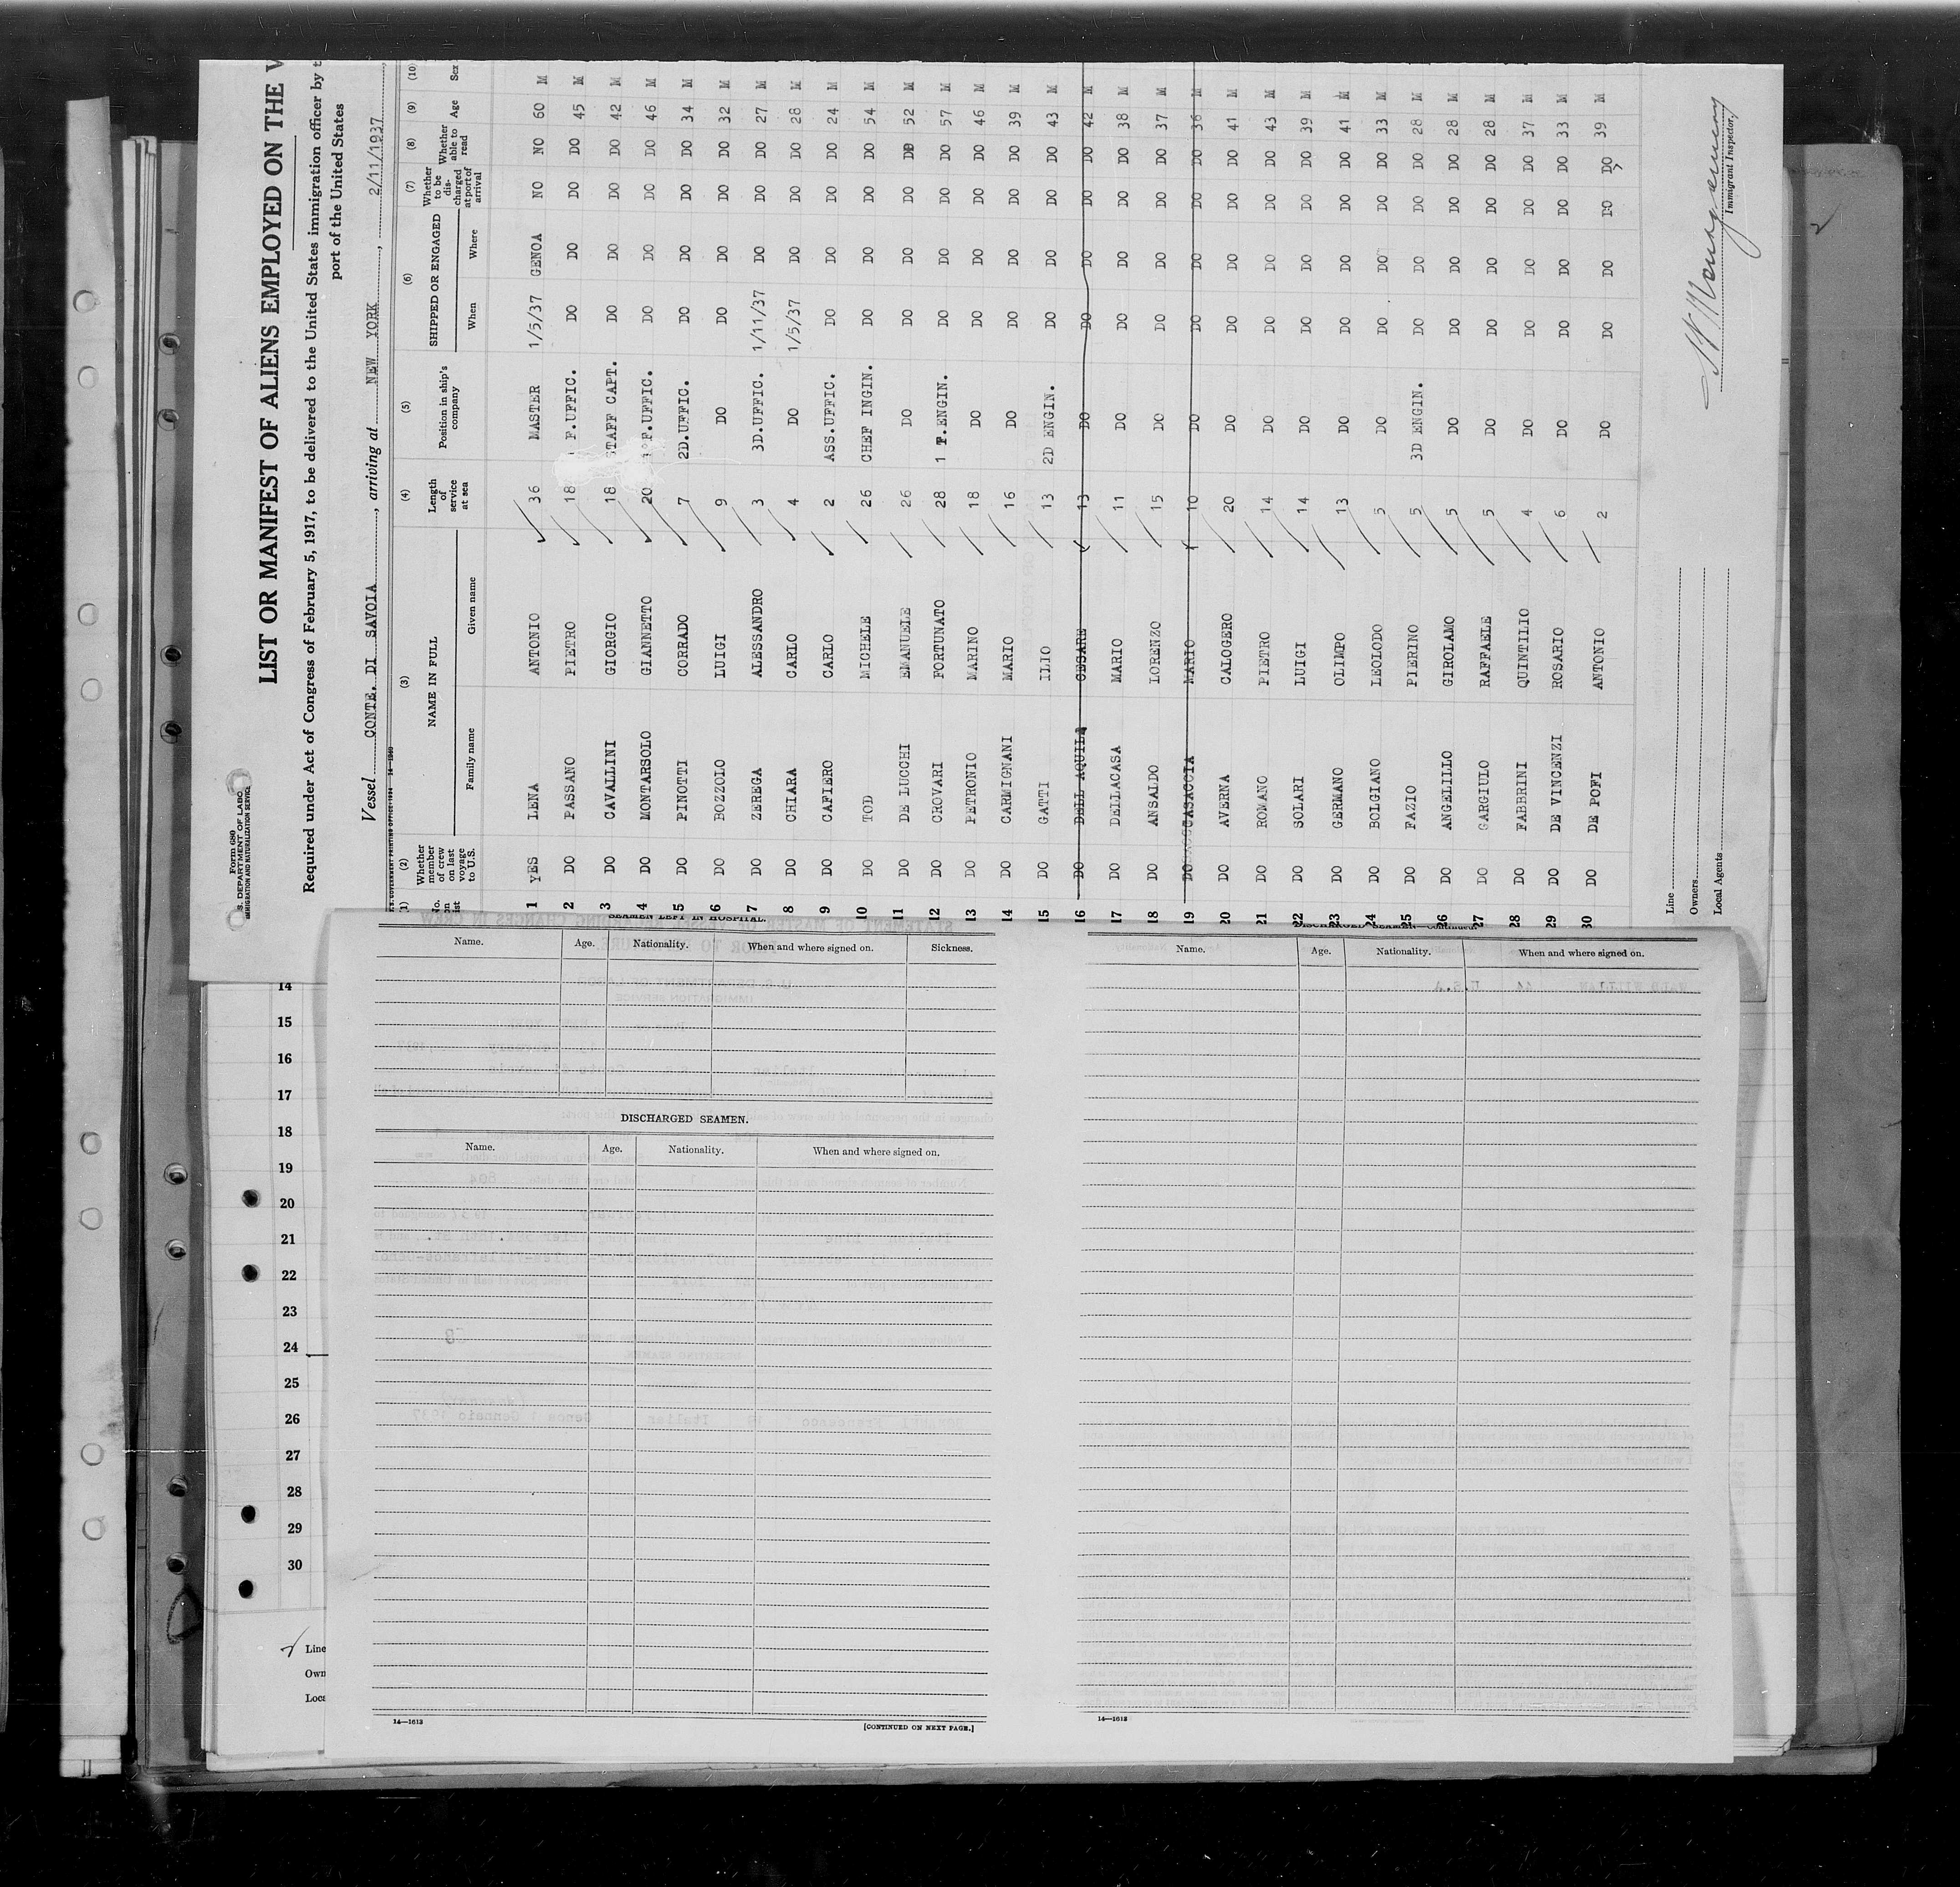 Form 680
S. DEPARTMENT OF LABO
IMMIGRATION AND NATURALIZATION SERVICE
LIST OR MANIFEST OF ALIENS EMPLOYED ON THE V
Required under Act of Congress of February 5, 1917, to be delivered to the United States immigration officer by t
port of the United States
Vessel CONTE. DI SAVOIA, arriving at NEW YORK, 2/11/1937
(1) (2) (3) (4) (5) (6) (7) (8) (9) (10)
No. on ist Whether member of crew on last voyage to U.S. NAME IN FULL Family name Given name Length of service at sea Position in ship's company SHIPPED OR ENGAGED When Where Whether to be discharged at port of arrival Whether able to read Age Sex
1 YES LENA ANTONIO 36 MASTER 1/5/37 GENOA NO NO 60 M
2 DO PASSANO PIETRO 18 F.UFFIC. DO DO DO DO 45 M
3 DO CAVALLINI GIORGIO 18 STAFF CAPT. DO DO DO DO 42 M
4 DO MONTARSOLO GIANNETTO 20 F.UFFIC. DO DO DO DO 46 M
5 DO PINOTTI CORRADO 7 2D.UFFIC. DO DO DO DO 34 M
6 DO BOZZOLO LUIGI 9 DO DO DO DO DO 32 M
7 DO ZEREGA ALESSANDRO 3 3D.UFFIC. 1/11/37 DO DO DO 27 M
8 DO CHIARA CARLO 4 DO 1/5/37 DO DO DO 28 M
9 DO CAFIERO CARLO 2 ASS.UFFIC. DO DO DO DO 24 M
10 DO TOD MICHELE 26 CHEF INGIN. DO DO DO DO 54 M
11 DO DE LUCCHI EMANUELE 26 DO DO DO DO DO 52 M
12 DO CROVARI FORTUNATO 28 1 T.ENGIN. DO DO DO DO 57 M
13 DO PETRONIO MARINO 18 DO DO DO DO DO 46 M
14 DO CARMIGNANI MARIO 16 DO DO DO DO DO 39 M
15 DO GATTI ILIO 13 2D ENGIN. DO DO DO DO 43 M
16 DO DELL AQUILA CESARE 13 DO DO DO DO DO 42 M
17 DO DELLACASA MARIO 11 DO DO DO DO DO 38 M
18 DO ANSALDO LORENZO 15 DO DO DO DO DO 37 M
19 DO CASACCIA MARIO 10 DO DO DO DO DO 36 M
20 DO AVERNA CALOGERO 20 DO DO DO DO DO 41 M
21 DO ROMANO PIETRO 14 DO DO DO DO DO 43 M
22 DO SOLARI LUIGI 14 DO DO DO DO DO 39 M
23 DO GERMANO OLIMPO 13 DO DO DO DO DO 41 M
24 DO BOLGIANO LEOLODO 5 DO DO DO DO DO 33 M
25 DO FAZIO PIERINO 5 3D ENGIN. DO DO DO DO 28 M
26 DO ANGELILLO GIROLAMO 5 DO DO DO DO DO 28 M
27 DO GARGIULO RAFFAELE 5 DO DO DO DO DO 28 M
28 DO FABBRINI QUINTILIO 4 DO DO DO DO DO 37 M
29 DO DE VINCENZI ROSARIO 6 DO DO DO DO DO 33 M
30 DO DE POFI ANTONIO 2 DO DO DO DO DO 39 M
Line
Owners
Local Agents
Immigrant Inspector.
SEAMEN LEFT IN HOSPITAL.
Name. Age. Nationality. When and where signed on. Sickness.
DISCHARGED SEAMEN.
Name. Age. Nationality. When and where signed on.
14—1613
[CONTINUED ON NEXT PAGE.]
DISCHARGED SEAMEN—Continued.
Name. Age. Nationality. When and where signed on.
14—1613
14
15
16
17
18
19
20
21
22
23
24
25
26
27
28
29
30
Line
Own
Loca